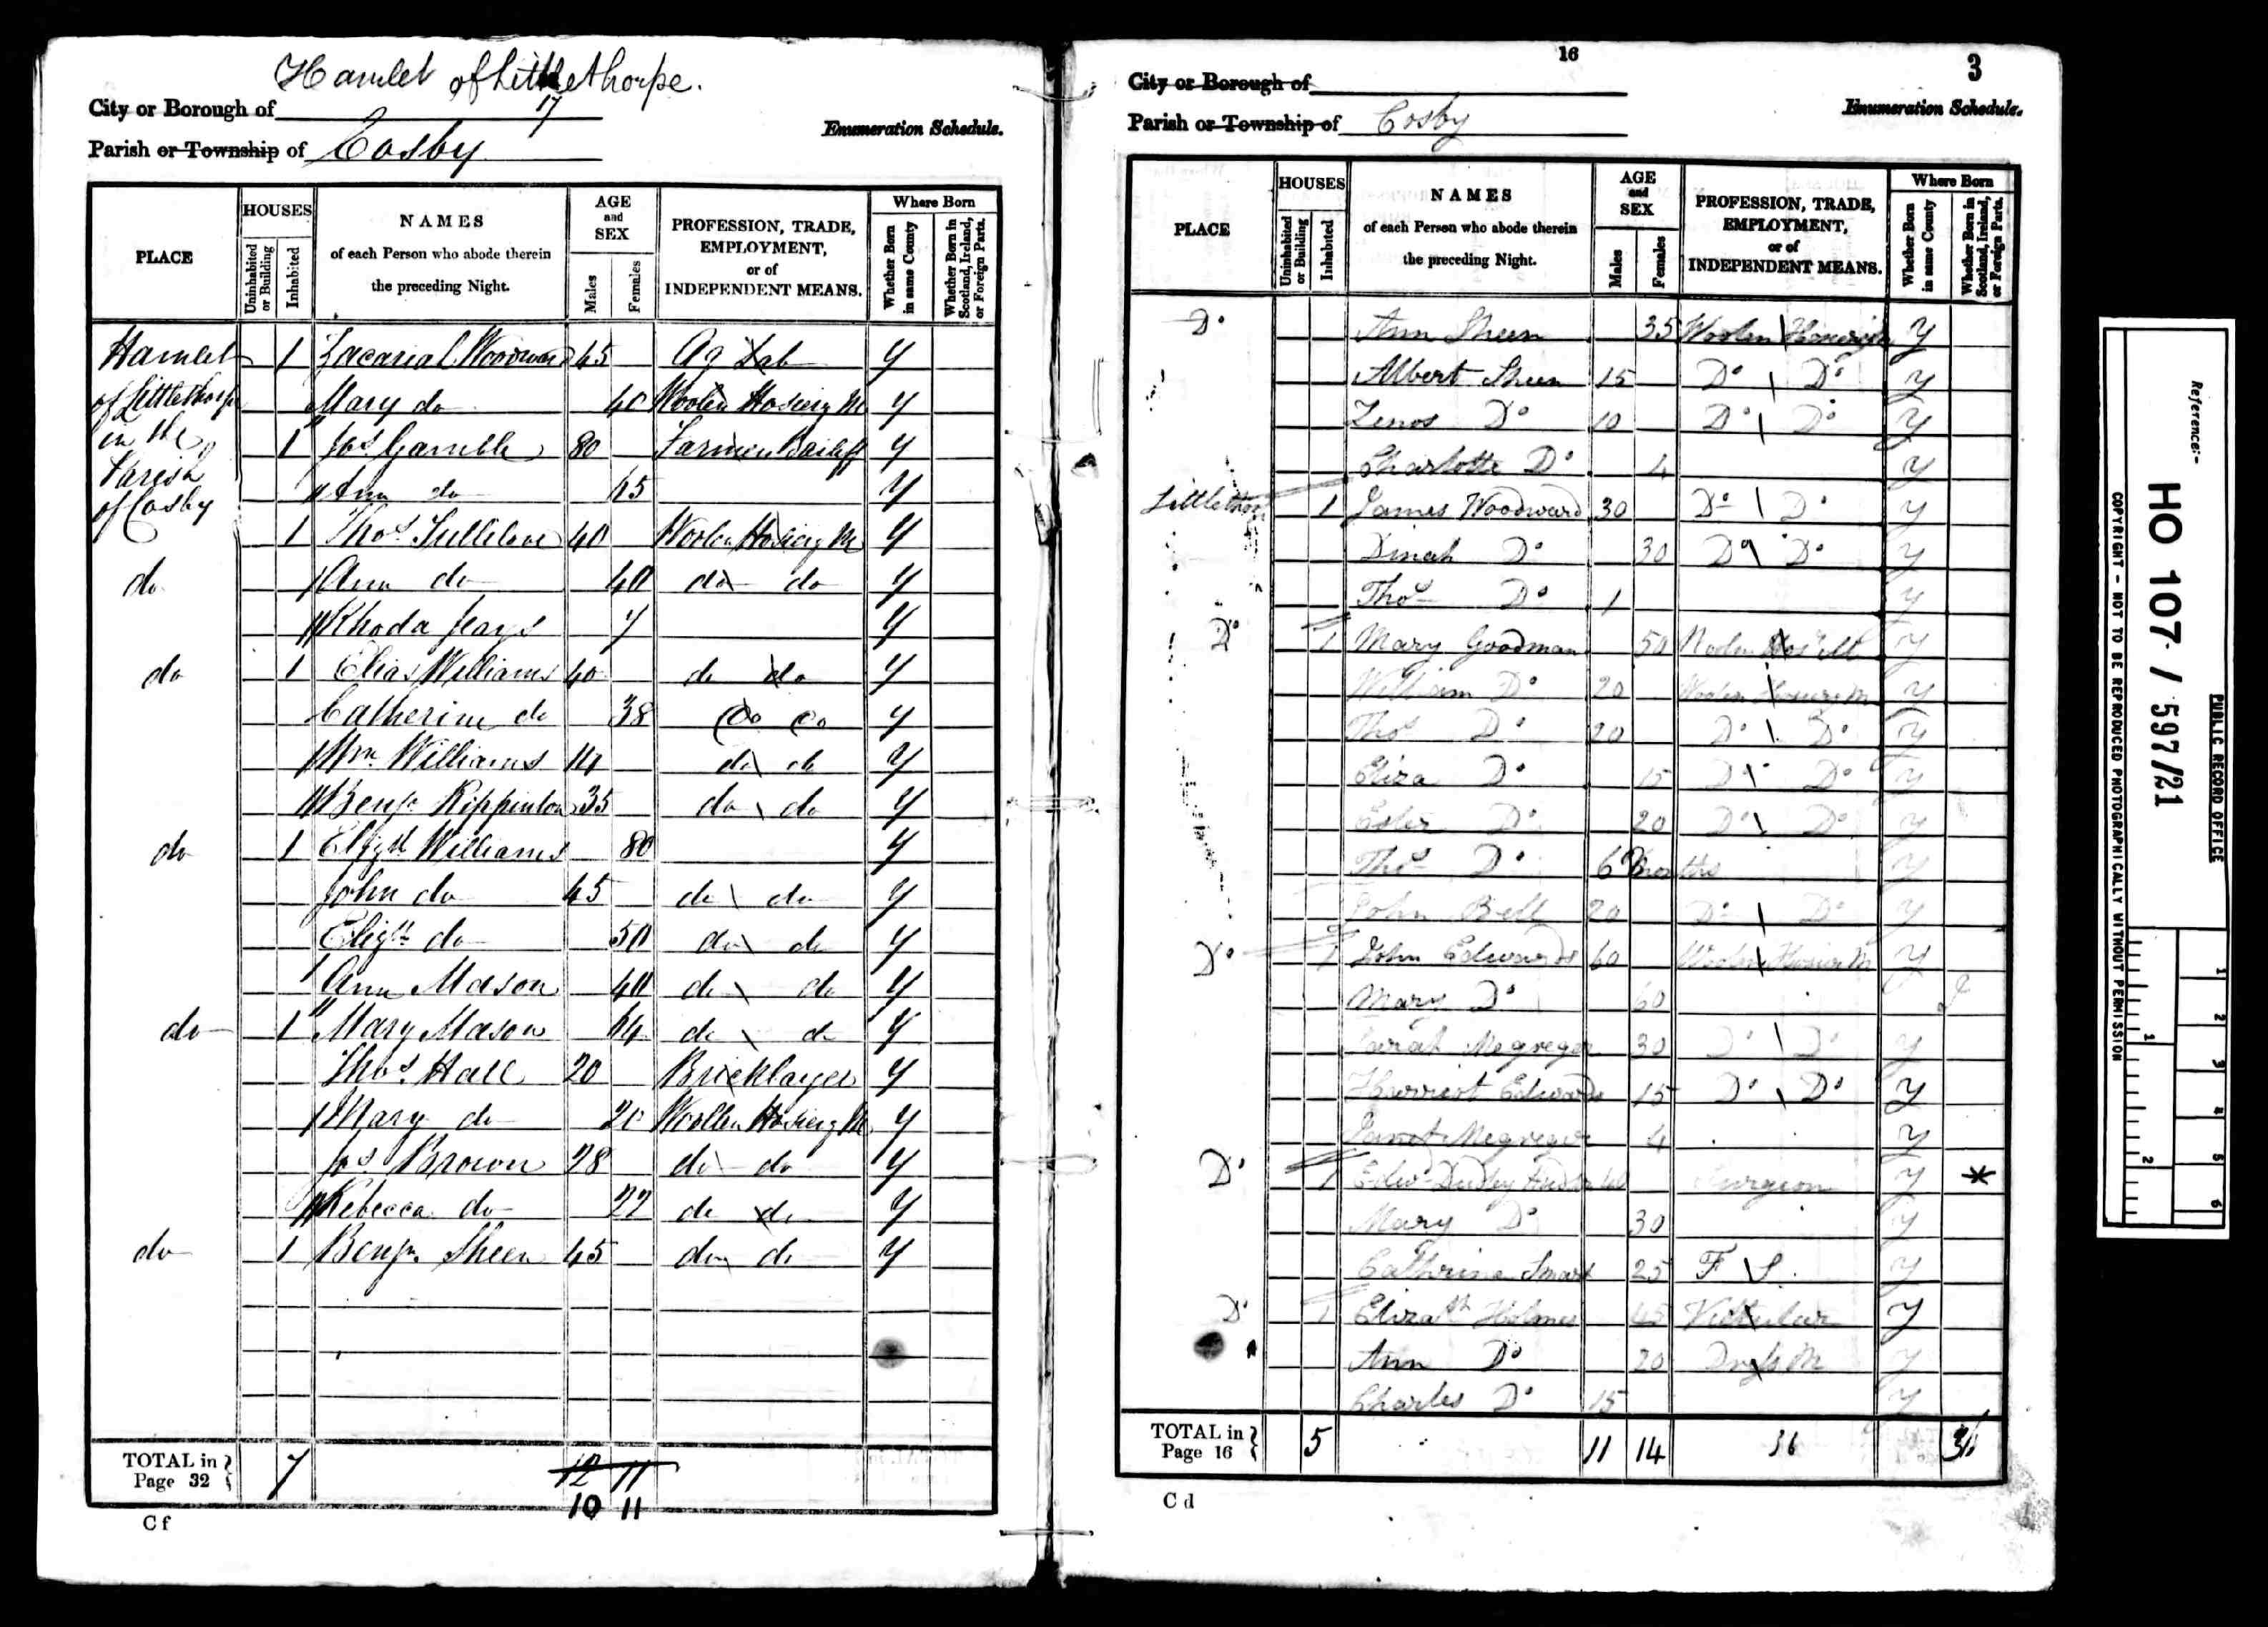 Hamlet of Littlethorpe.
17
City or Borough of
Enumeration Schedule.
Parish or Township of Cosby
PLACE
HOUSES
Uninhabited or Building
Inhabited
NAMES of each Person who abode therein the preceding Night.
AGE and SEX
Males
Females
PROFESSION, TRADE, EMPLOYMENT, or of INDEPENDENT MEANS.
Where Born
Whether Born in same County
Whether Born in Scotland, Ireland, or Foreign Parts.
Hamlet 1 Zacariah Woodward 45 Ag Lab y
of Littlethorpe Mary do 40 Woolen Hosiery M y
in the 1 Jos Gamble 80 Farmers Bailiff y
Parish Ann do y
of Cosby 1 Thos Fullilove 40 Woolen Hosiery M y
do Ann do 40 do do y
Rhoda Jeays 7 y
do 1 Elias Williams 40 do do y
Catherine do 38 do do y
Wm Williams 14 do do y
Benjn Rippinton 35 do do y
do 1 Elizth Williams 80 y
John do 45 do do y
Elizth do 50 do do y
Ann Mason 40 do do y
do 1 Mary Mason 64 do do y
Thos Hall 20 Bricklayer y
Mary do 20 Woollen Hosiery M y
Jos Brown 28 do do y
Rebecca do 22 do do y
do 1 Benjn Sheen 45 do do y
TOTAL in Page 32 7 12 11
10 11
C f
16
3
City or Borough of
Enumeration Schedule.
Parish or Township of Cosby
PLACE
HOUSES
Uninhabited or Building
Inhabited
NAMES of each Person who abode therein the preceding Night.
AGE and SEX
Males
Females
PROFESSION, TRADE, EMPLOYMENT, or of INDEPENDENT MEANS.
Where Born
Whether Born in same County
Whether Born in Scotland, Ireland, or Foreign Parts.
Do Ann Sheen 35 Woolen y
Albert Sheen 15 Do Do y
Zenos Do 10 Do Do y
Charlotte Do 4 y
Littlethor 1 James Woodward 30 Do Do y
Dinah Do 30 Do Do y
Thos Do 1 y
Do 1 Mary Goodman 50 Woolen Hos M y
William Do 20 Woolen M y
Thos Do 20 Do Do y
Eliza Do 15 Do Do y
Ester Do 20 Do Do y
Thos Do 6 Months y
John Bell 20 Do Do y
Do 1 John Edwards 60 Woolen Hosier M y
Mary Do 60
Sarah Megregor 30 Do Do y
Harriert Edwards 15 Do Do y
Janet Megregor 4 y
Do 1 Edwd Dudley Surgeon y *
Mary Do 30 y
Cathrine Smart 25 F S. y
Do 1 Elizath Holmes 45 y
Ann Do 20 y
Charles Do 15 y
TOTAL in Page 16 5 11 14 36
C d
Reference:-
HO 107 / 597/21
PUBLIC RECORD OFFICE
COPYRIGHT - NOT TO BE REPRODUCED PHOTOGRAPHICALLY WITHOUT PERMISSION
1 2 3 4 5 6
1 2